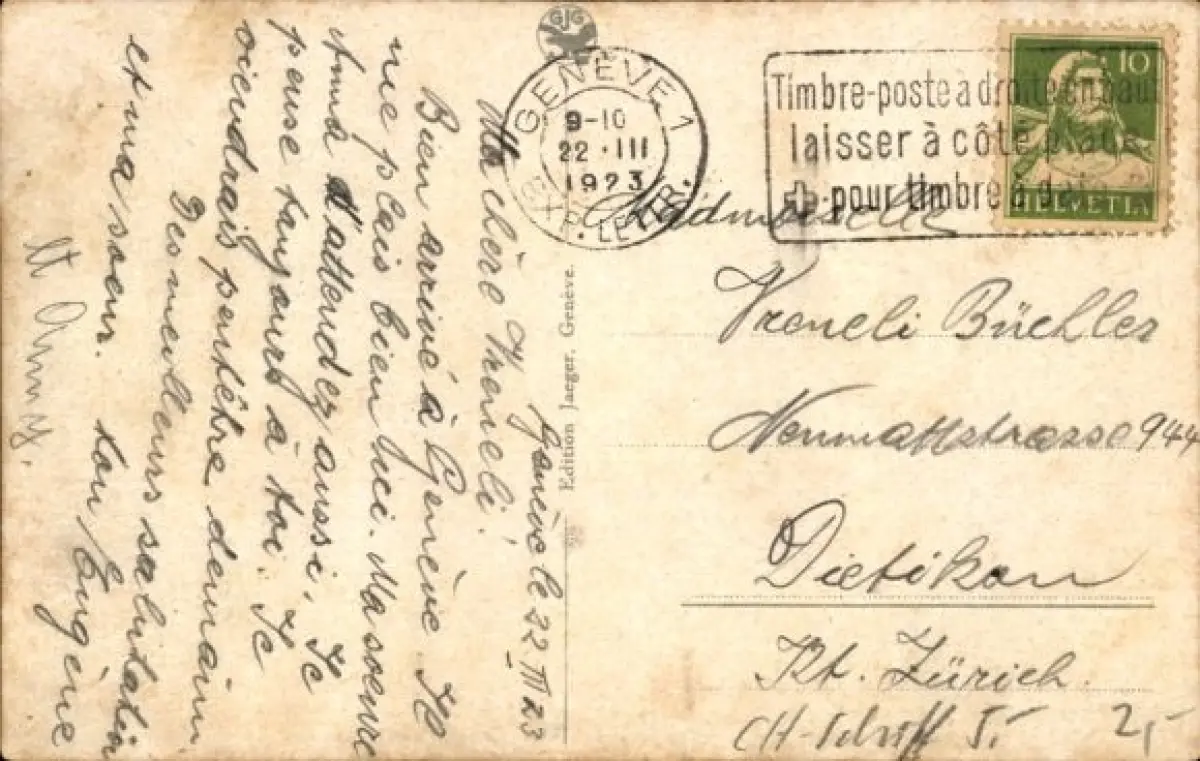 GJG
GENÈVE 1
9-10
22·III
1923
EXP. LETTR.
Timbre-poste à droite en haut
laisser à côté place
pour timbre à date
10
HELVETIA
Edition Jaeger, Genève.
Genève le 22 III 23
Ma chère Vreneli!
Bien arrivé à Genève. Il
me plais bien ici. Ma soeur
Anna d'attendez aussi. Je
pense toujours à toi. Je
viendrais pentêhre demain
Des meilleurs salutation
et ma soeur. ton Eugène
Mademoiselle
Vreneli Büchler
Neumattstrasse 944
Dietikon
Kt. Zürich.
CH-Schiff 5.-
2,-